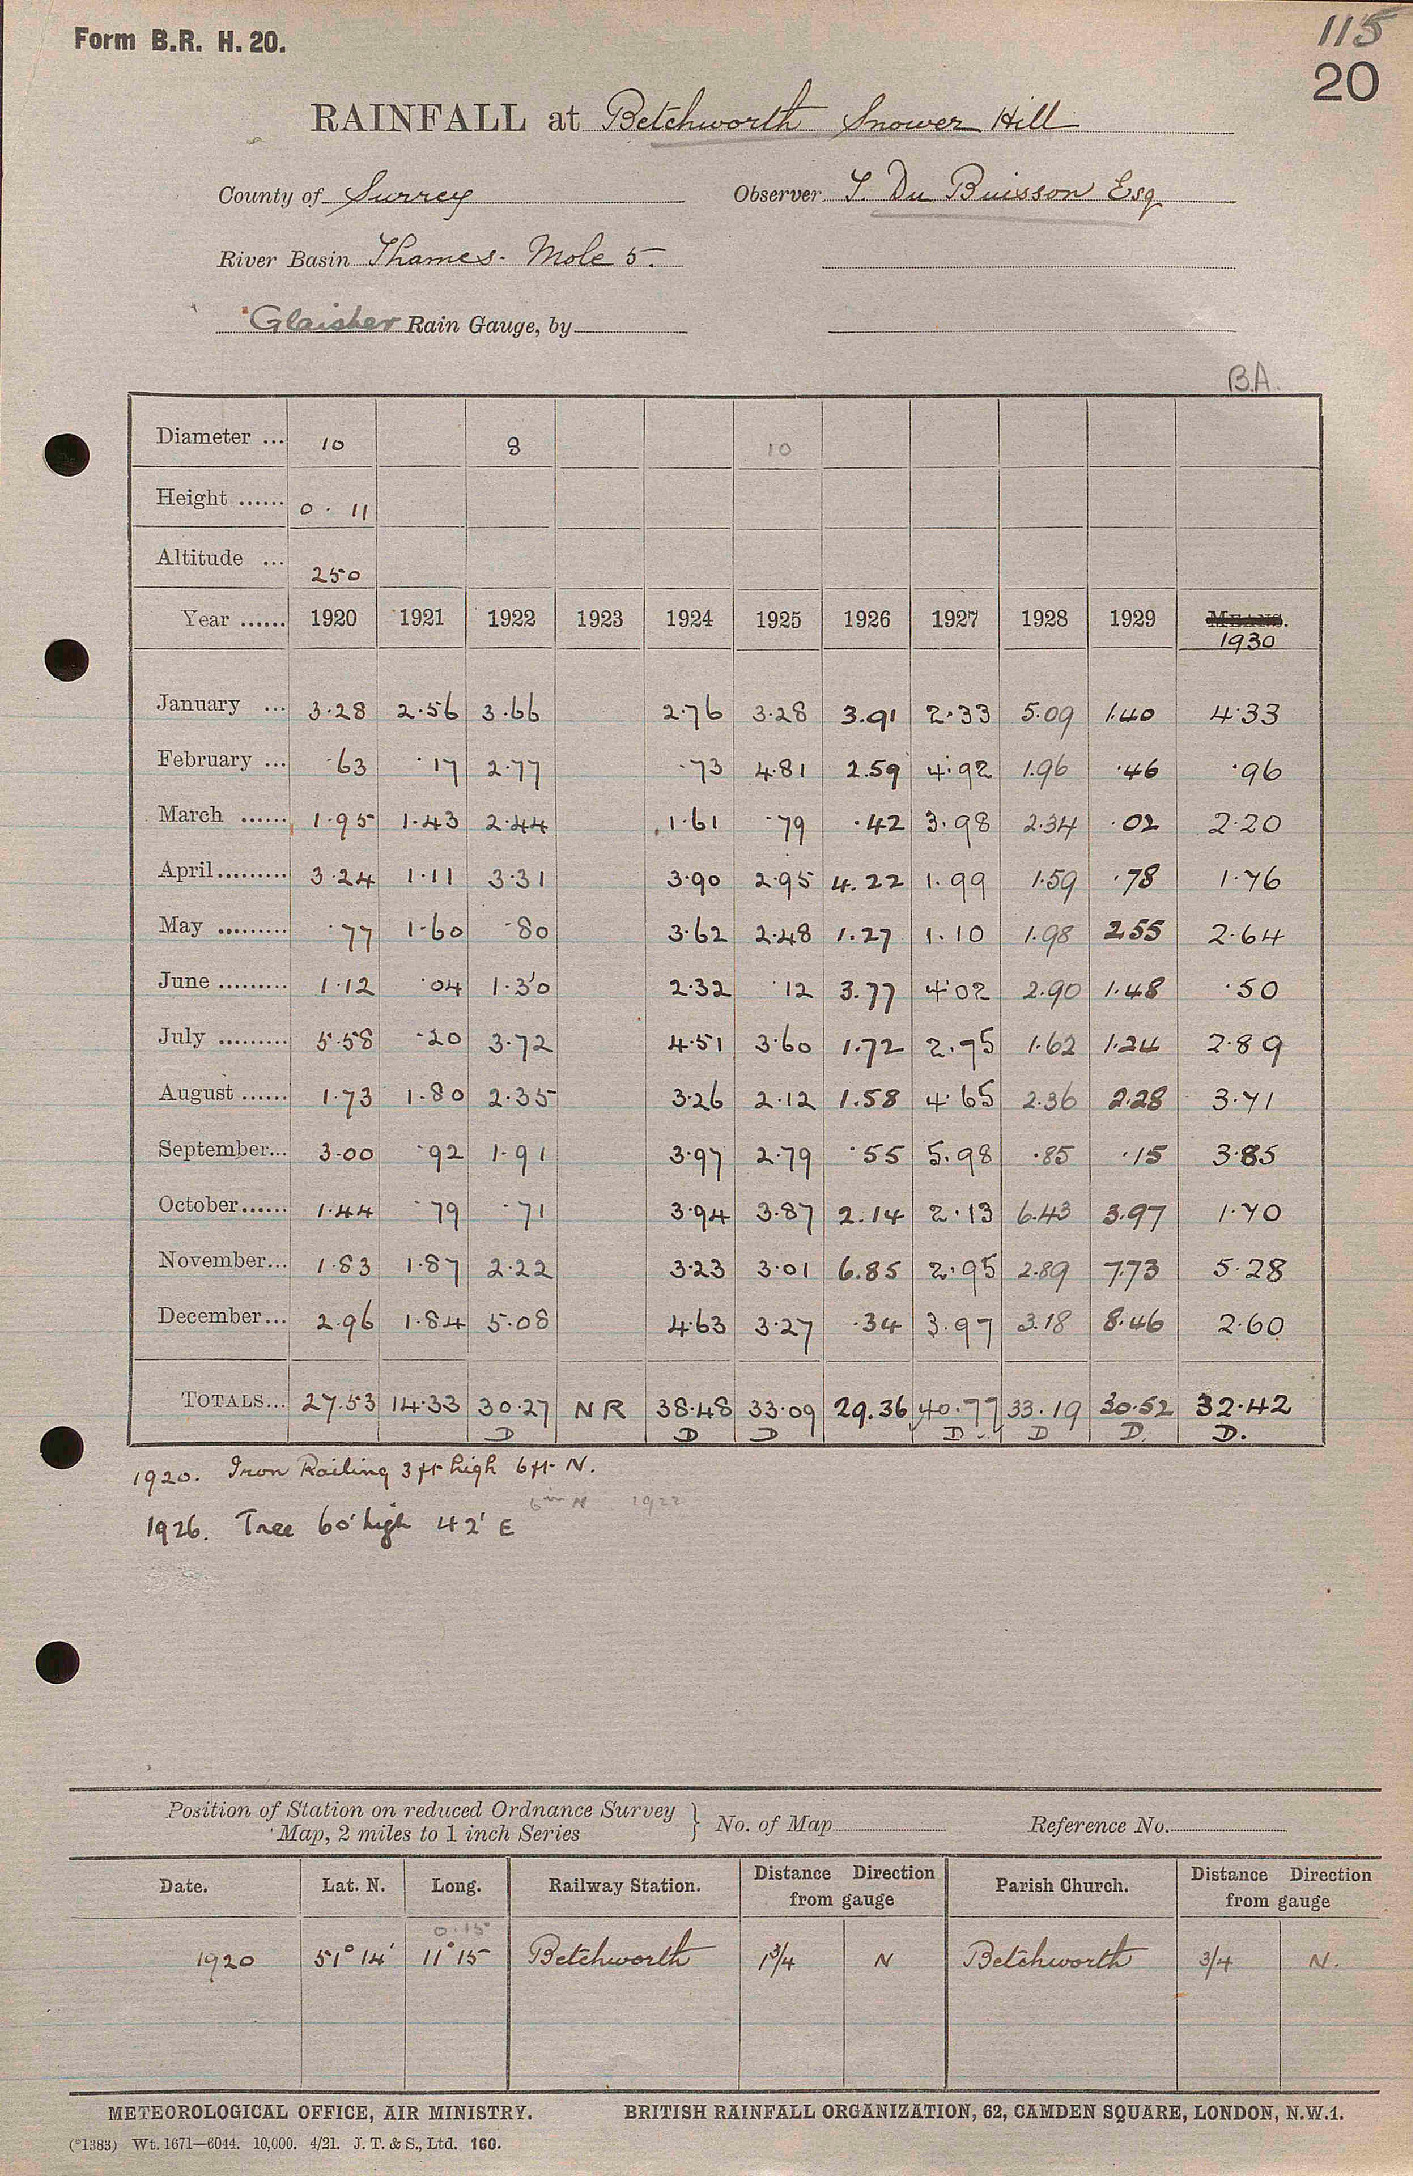 Form B.R. H. 20.
115
20
RAINFALL at Betchworth Snower Hill
County of Surrey Observer T. Du Buisson Esq
River Basin Thames. Mole 5.
Glaisher Rain Gauge, by
B.A.
Diameter ... 10 8 10
Height ...... 0 . 11
Altitude ... 250
Year ...... 1920 1921 1922 1923 1924 1925 1926 1927 1928 1929 MEANS.
1930
January ... 3.28 2.56 3.66 2.76 3.28 3.91 2.33 5.09 1.40 4.33
February ... .63 .17 2.77 .73 4.81 2.59 4.92 1.96 .46 .96
March ...... 1.95 1.43 2.44 1.61 .79 .42 3.98 2.34 .02 2.20
April......... 3.24 1.11 3.31 3.90 2.95 4.22 1.99 1.59 .78 1.76
May ......... .77 1.60 .80 3.62 2.48 1.27 1.10 1.98 2.55 2.64
June ......... 1.12 .04 1.30 2.32 .12 3.77 4.02 2.90 1.48 .50
July ......... 5.58 .20 3.72 4.51 3.60 1.72 2.75 1.62 1.24 2.89
August ...... 1.73 1.80 2.35 3.26 2.12 1.58 4.65 2.36 2.28 3.71
September... 3.00 .92 1.91 3.97 2.79 .55 5.98 .85 .15 3.85
October...... 1.44 .79 .71 3.94 3.87 2.14 2.13 6.43 3.97 1.70
November... 1.83 1.87 2.22 3.23 3.01 6.85 2.95 2.89 7.73 5.28
December... 2.96 1.84 5.08 4.63 3.27 .34 3.97 3.18 8.46 2.60
TOTALS... 27.53 14.33 30.27 NR 38.48 33.09 29.36 40.77 33.19 30.52 32.42
D D D D. D D. D.
1920. Iron Railing 3 ft high 6 ft N.
6 in N 1922
1926. Tree 60' high 42' E
Position of Station on reduced Ordnance Survey
Map, 2 miles to 1 inch Series } No. of Map Reference No.
Date. Lat. N. Long. Railway Station. Distance Direction from gauge Parish Church. Distance Direction from gauge
0.15
1920 51° 14' 11° 15 Betchworth 1 3/4 N Betchworth 3/4 N.
METEOROLOGICAL OFFICE, AIR MINISTRY. BRITISH RAINFALL ORGANIZATION, 62, CAMDEN SQUARE, LONDON, N.W.1.
(*1383) Wt. 1671—6044. 10,000. 4/21. J. T. & S., Ltd. 160.